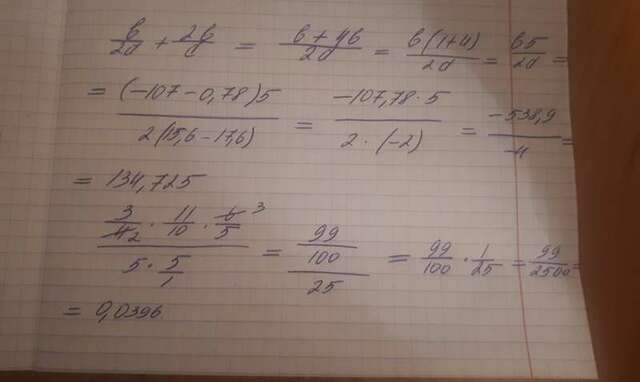 b/2d + 2b/d = b+4b/2d = b(1+4)/2d = b5/2d =
= (-107-0,78)5/2(15,6-17,6) = -107,78·5/2·(-2) = -538,9/-4 =
= 134,725
3/4 2 · 11/10 · 6/5 3 / 5·5/1 = 99/100 / 25 = 99/100 · 1/25 = 99/2500 =
= 0,0396